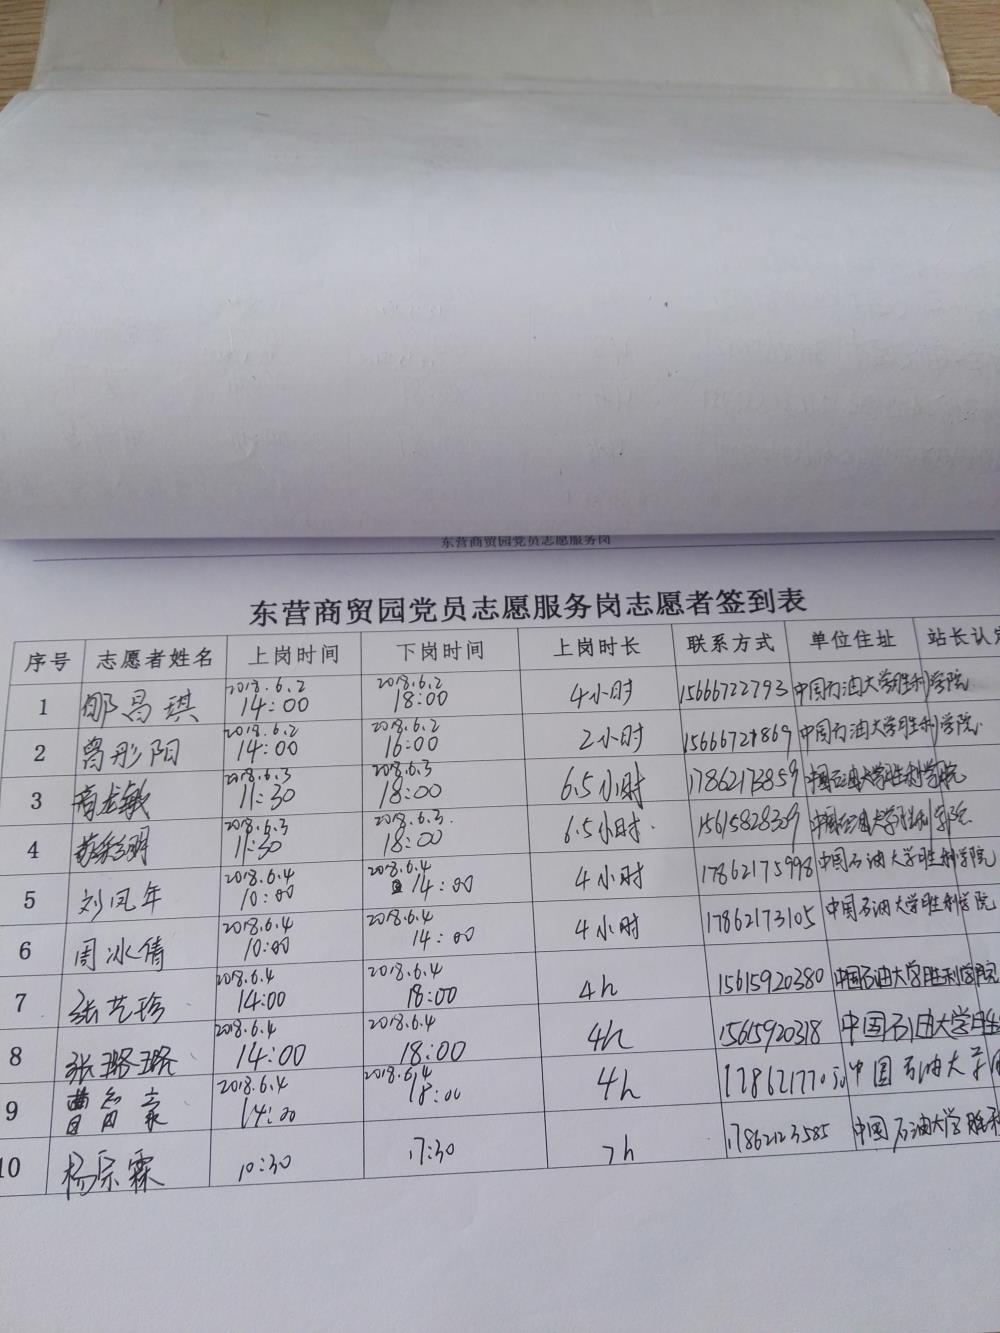 东营商贸园党员志愿服务岗
东营商贸园党员志愿服务岗志愿者签到表
序号 志愿者姓名 上岗时间 下岗时间 上岗时长 联系方式 单位住址 站长认定
1 邬昌琪 2018.6.2 14:00 2018.6.2 18:00 4小时 15666722793 中国石油大学胜利学院
2 曾彤阳 2018.6.2 14:00 2018.6.2 16:00 2小时 15666721869 中国石油大学胜利学院
3 高龙敏 2018.6.3 11:30 2018.6.3 18:00 6.5小时 17862173859 中国石油大学胜利学院
4 2018.6.3 11:30 2018.6.3. 18:00 6.5小时. 15615828309 中国石油大学胜利学院
5 刘凤年 2018.6.4 10:00 2018.6.4 14:00 4小时 17862175998 中国石油大学胜利学院
6 周冰倩 2018.6.4 10:00 2018.6.4 14:00 4小时 17862173105 中国石油大学胜利学院
7 张艺珍 2018.6.4 14:00 2018.6.4 18:00 4h 15615920380 中国石油大学胜利学院
8 张璐璐 2018.6.4 14:00 2018.6.4 18:00 4h 15615920318 中国石油大学胜
9 2018.6.4 14:00 2018.6.4 18:00 4h 中国石油大学
10 杨宗霖 10:30 17:30 7h 17862123585 中国石油大学胜利